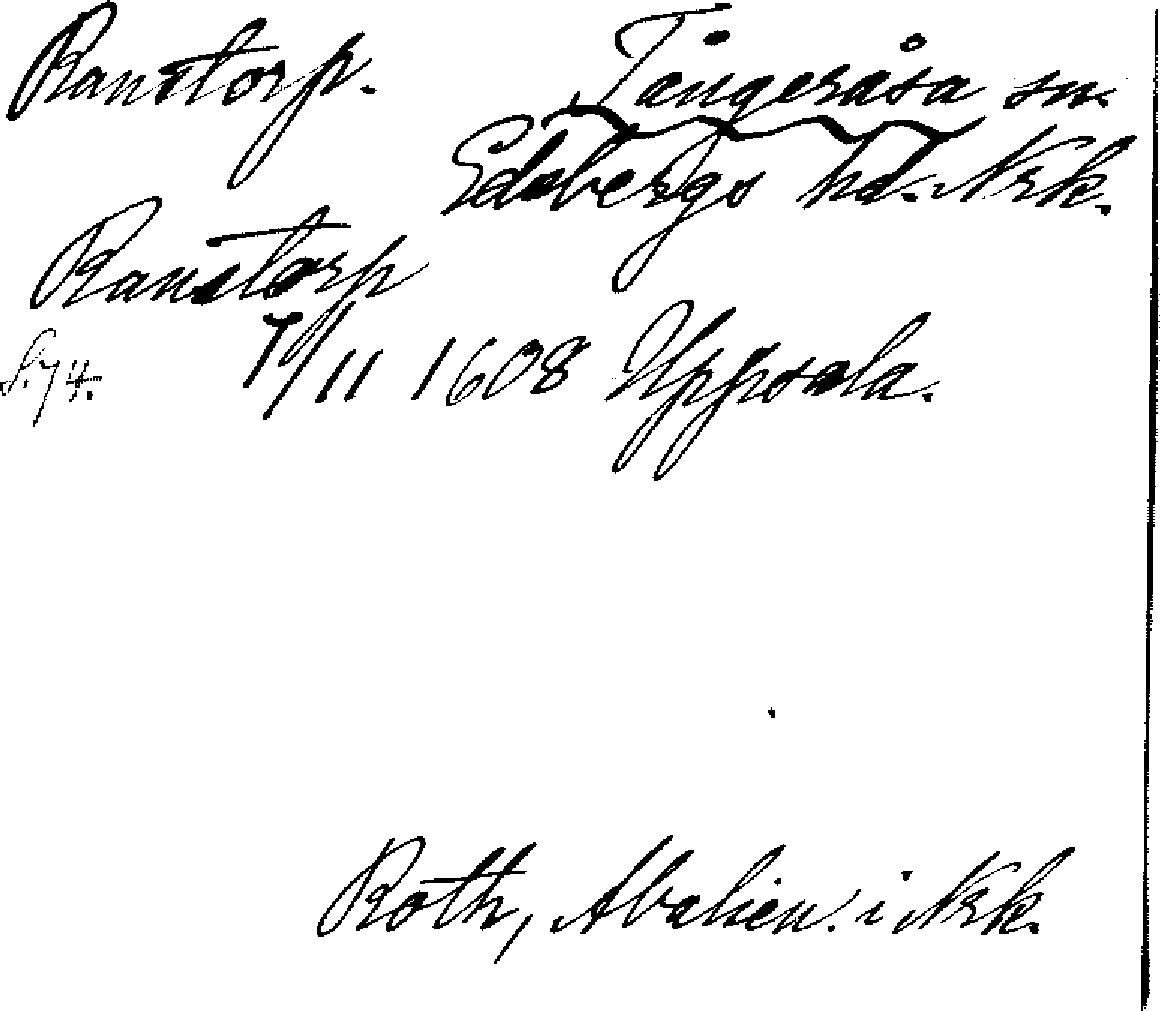 Ranstorp.
Tångeråsa sn.
Edsbergs hd. Nrk.
Ranstorp
S. 74. 7/11 1608 Uppsala.
Roth, Abalien. i Nrk.